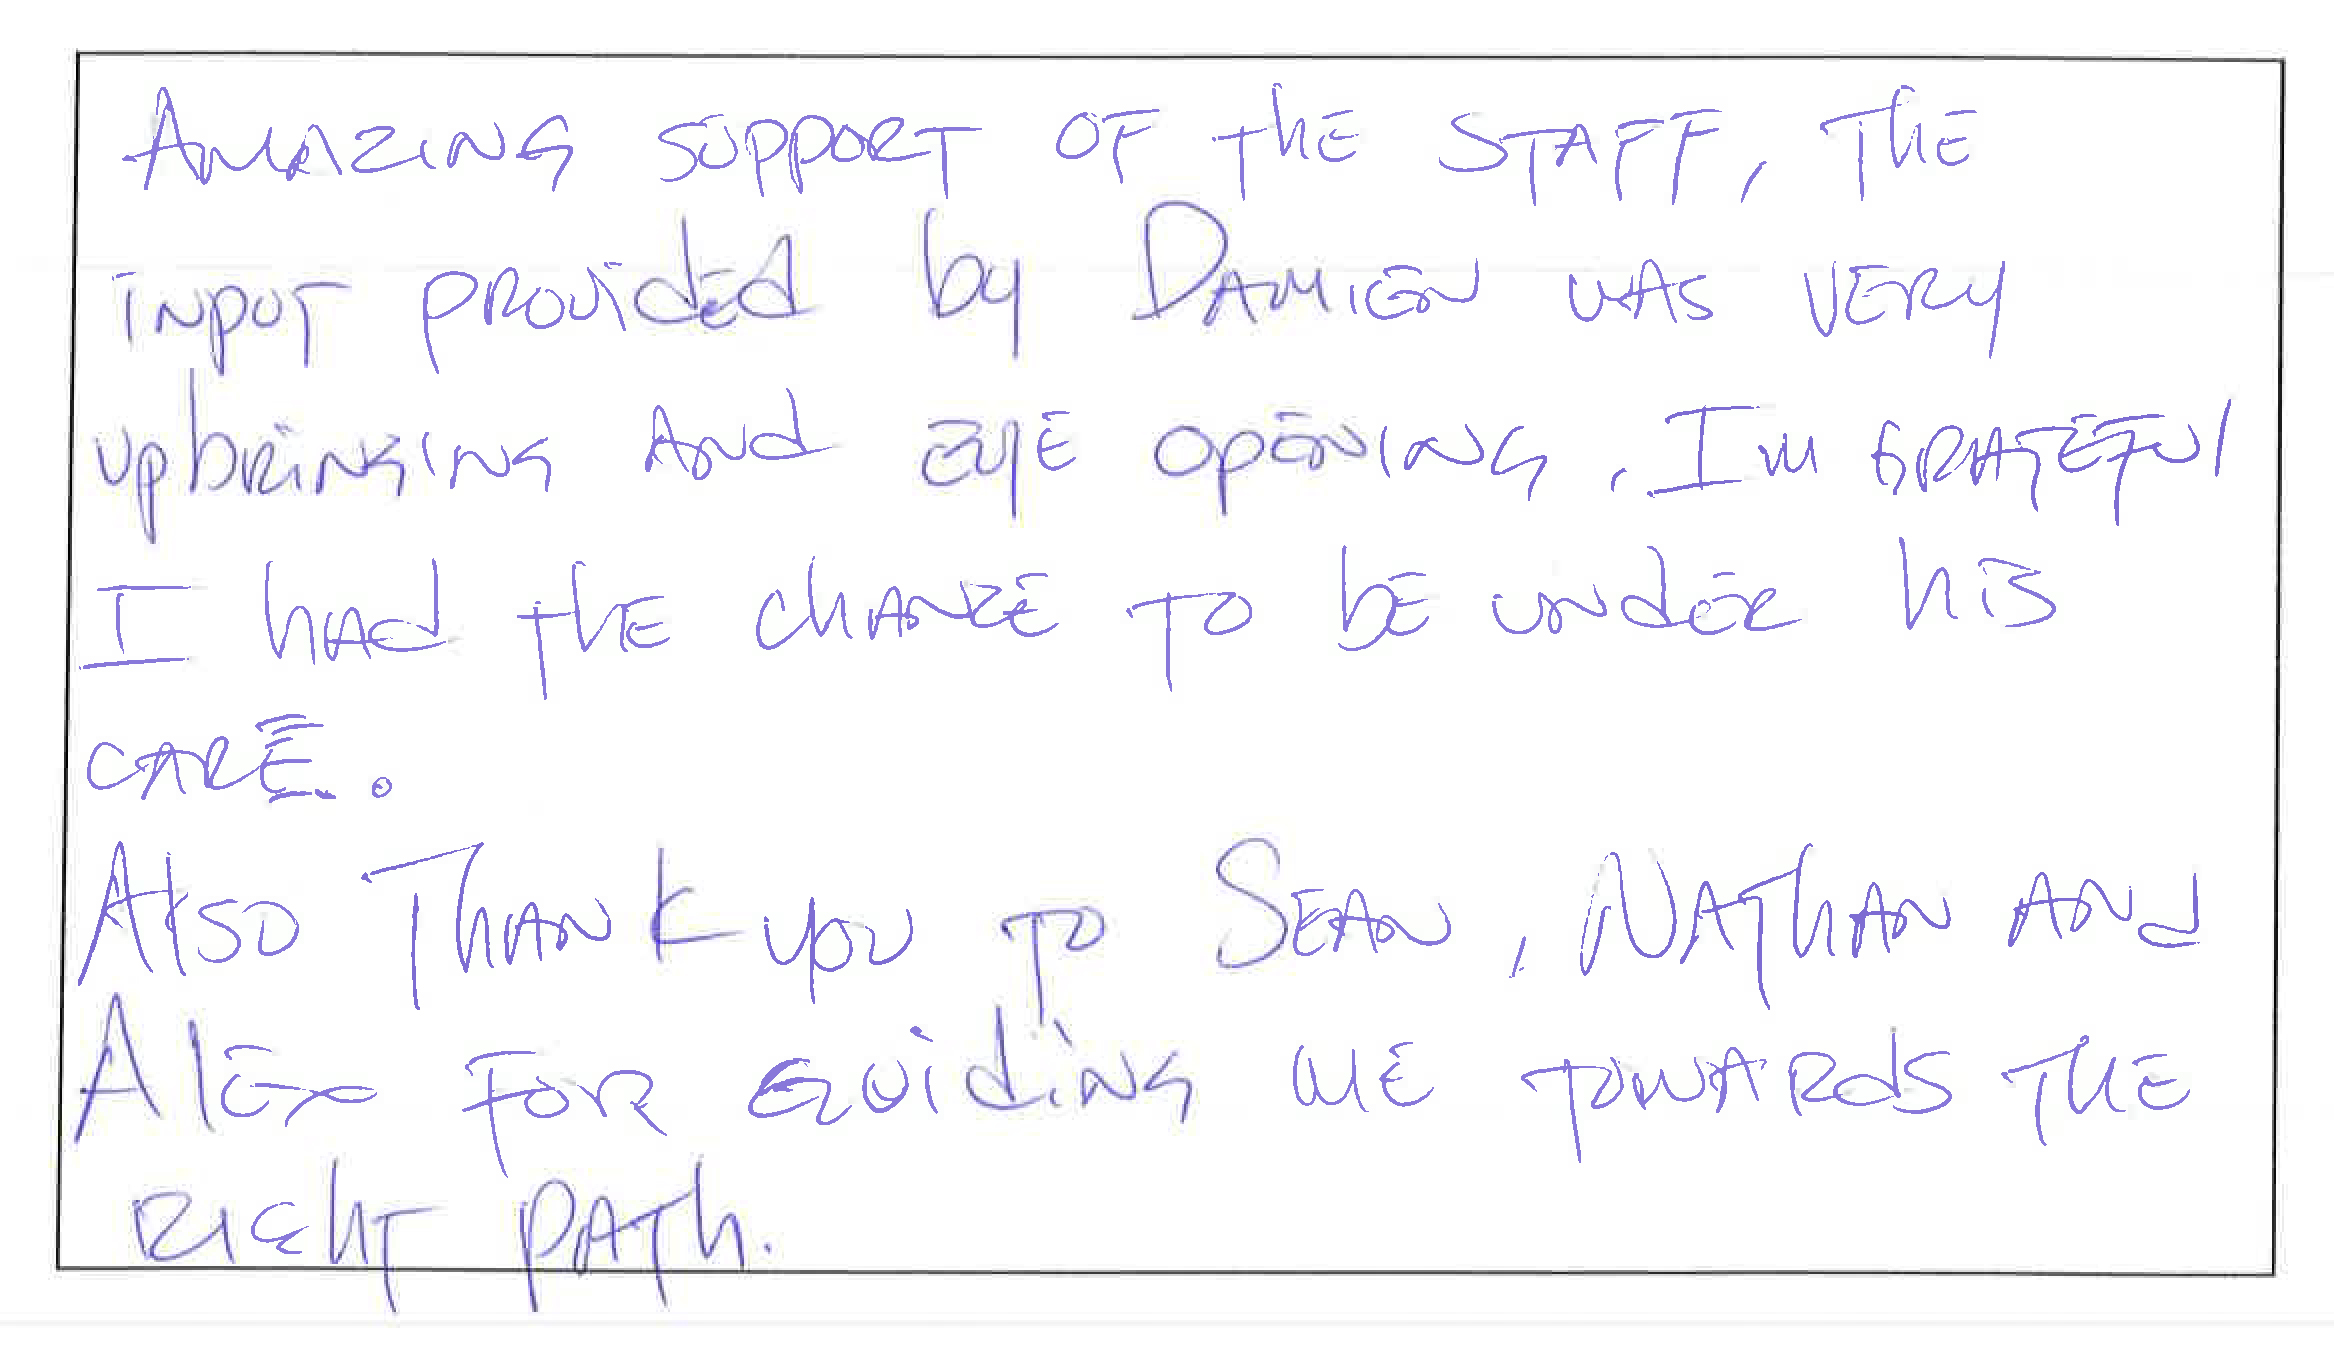 Amazing support of the staff, the
input provided by Damien was very
upbringing and eye opening. I'm grateful
I had the chance to be under his
care.
Also Thank you to Sean, Nathan and
Alex for guiding me towards the
right path.